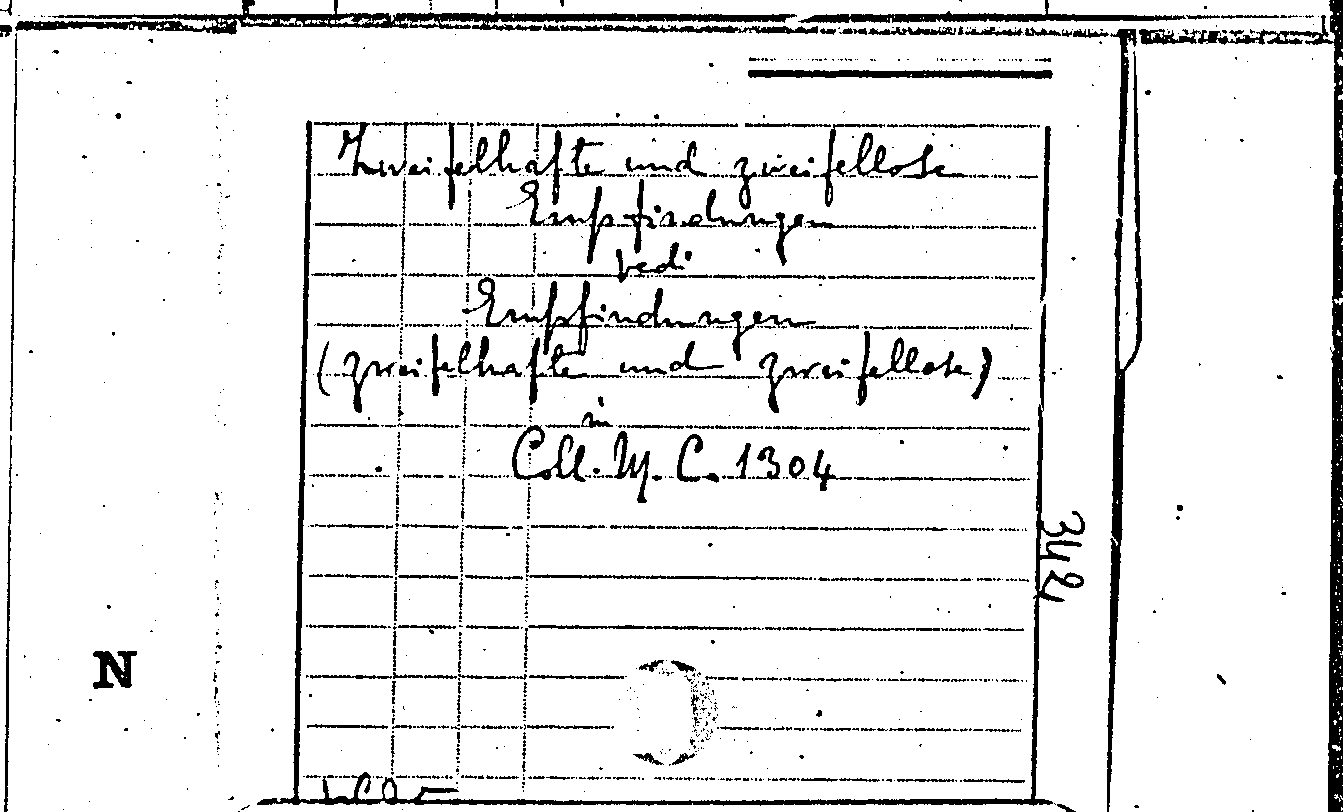 Zweifelhafte und zweifellose
Empfindungen
vedi
Empfindungen
(zweifelhafte und zweifellose)
in
Coll. M. C. 1304
342
N